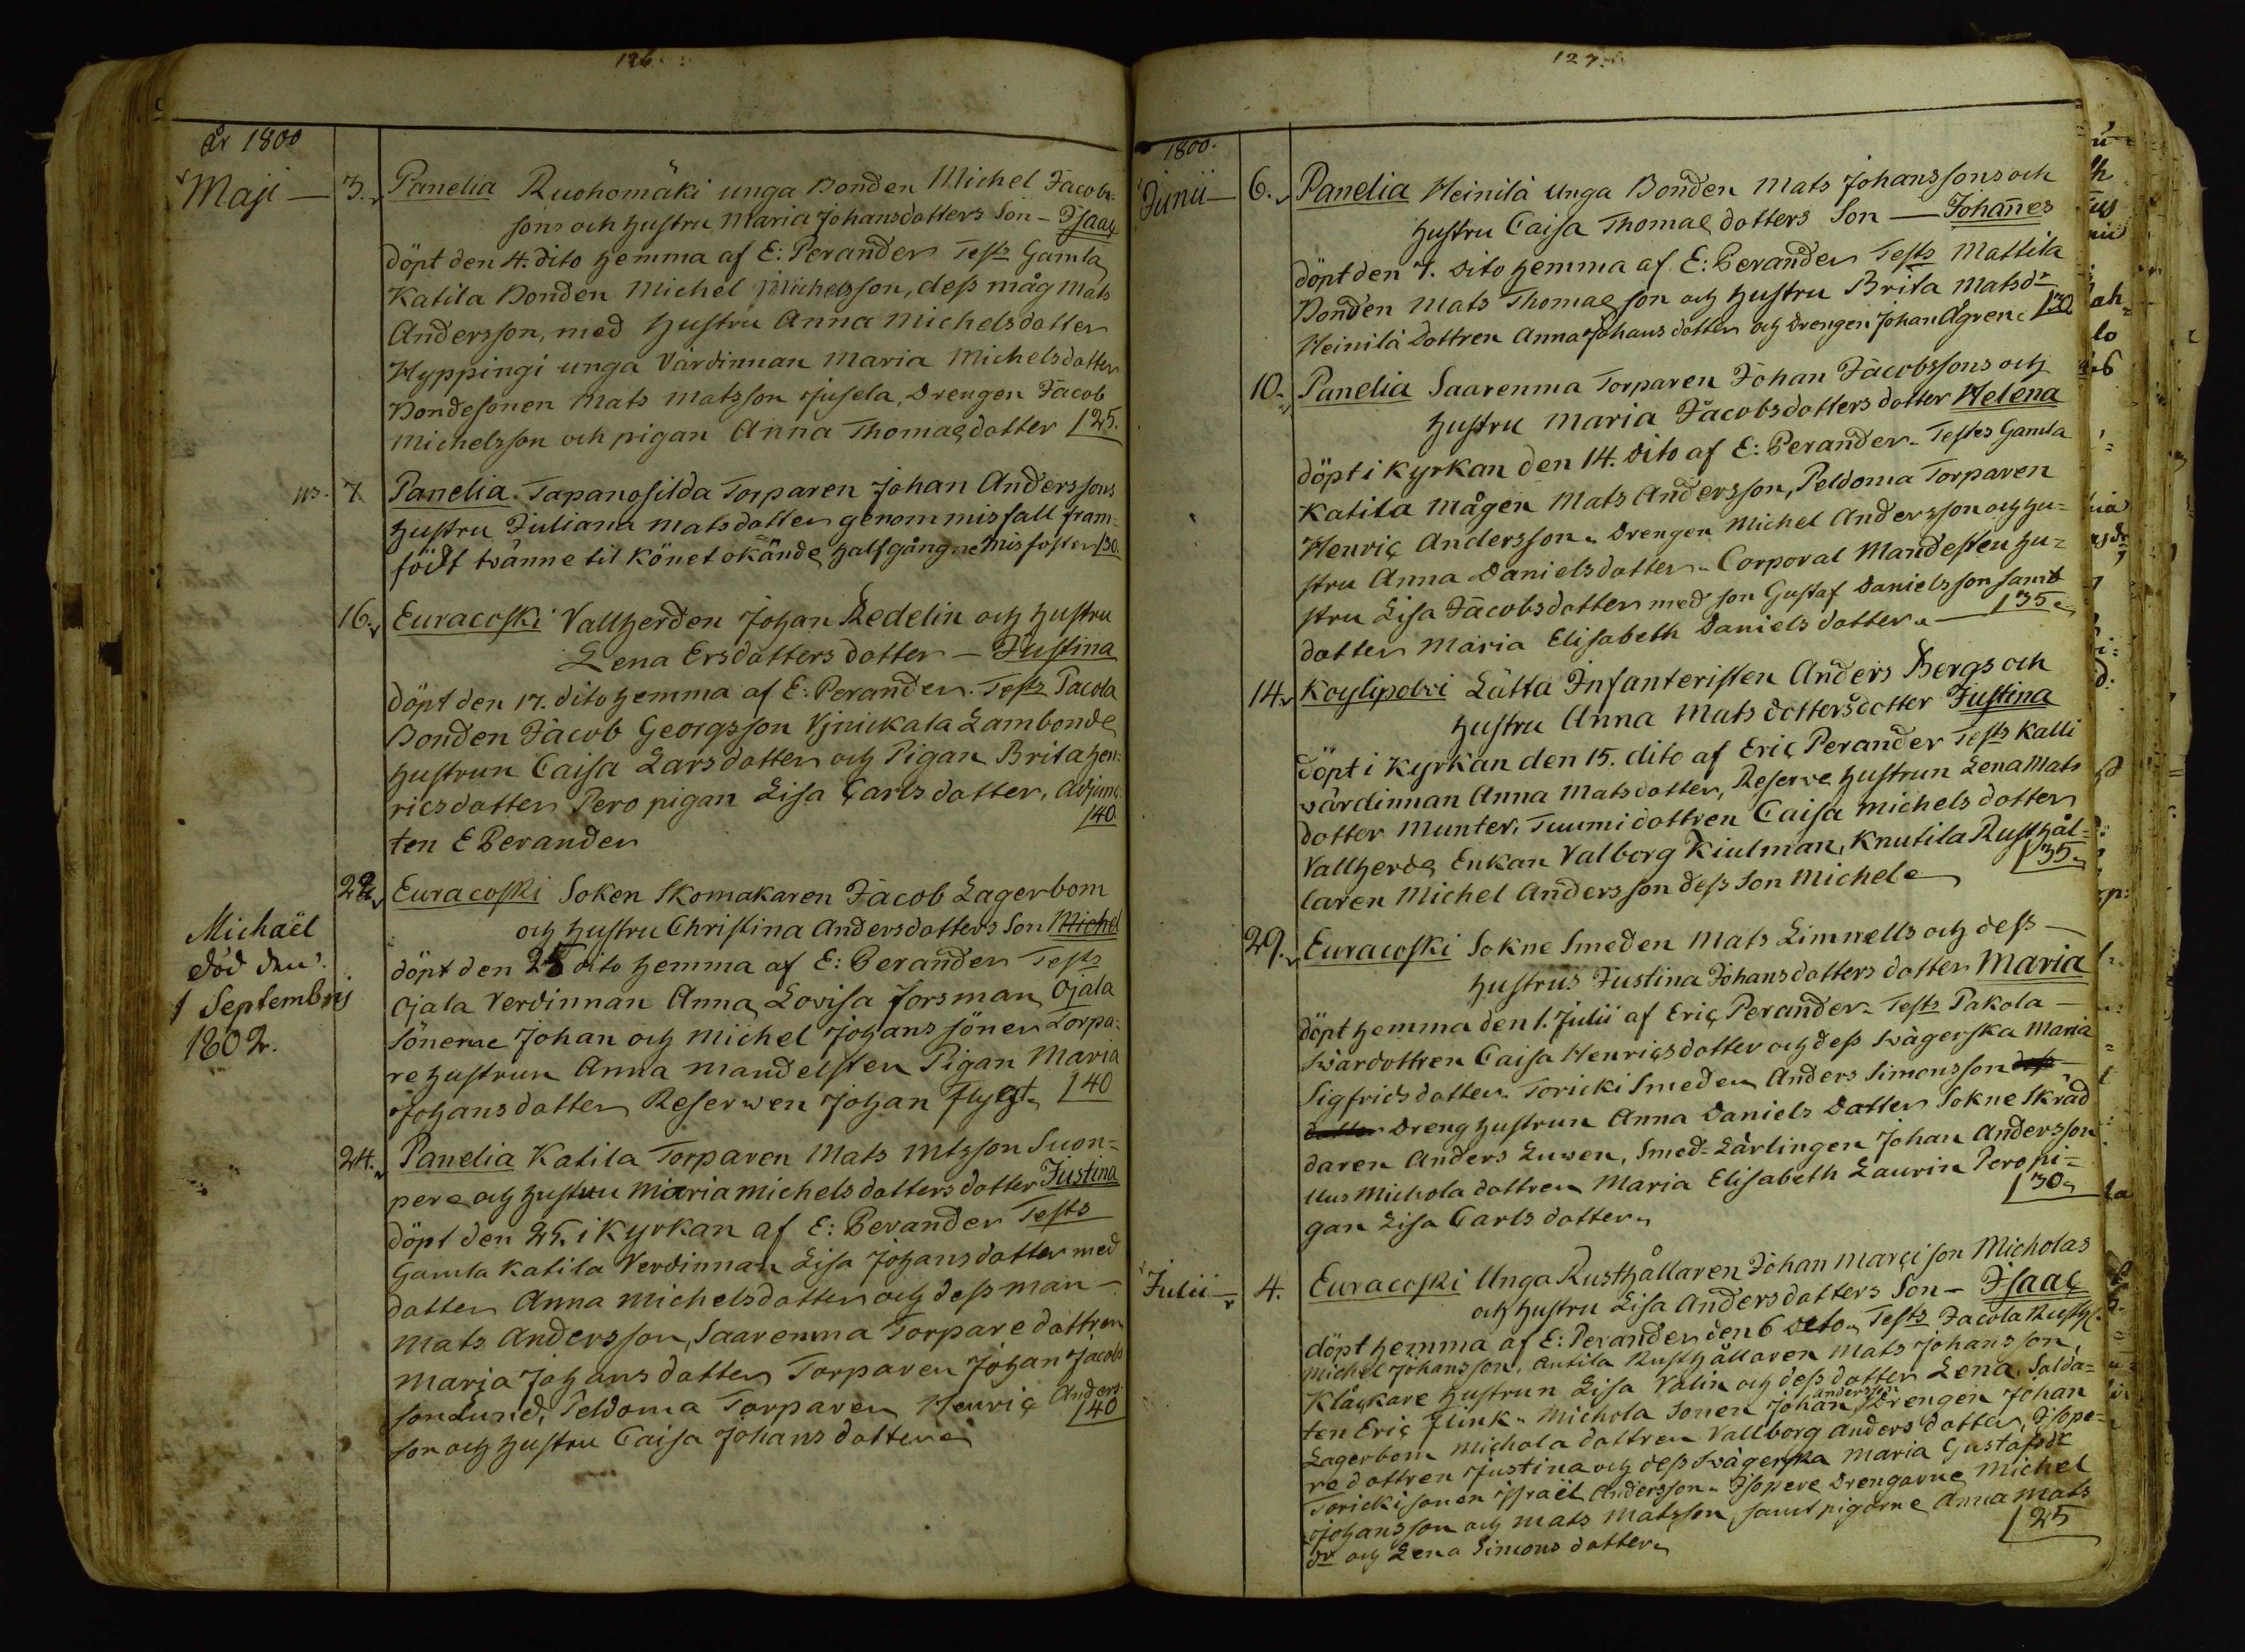 126.
år 1800
Maji — 3. Panelia Ruohomäki unga Bonden Michel Jacobs-
sons och hustru Maria Johansdotters Son – Isaac
döpt den 4. dito hemma af E: Perander Tests Gamla
Katila Bonden Michel Michelsson, dess måg Mats
Andersson, med hustru Anna Michelsdotter
Hyppingi unga Värdinnan Maria Michelsdotter
Bondesonen Mats Matsson Jusela, Drengen Jacob
Michelsson och pigan Anna Thomasdotter /25.
7. Panelia Tapanosilda Torparen Johan Anderssons
hustru Juliana Matsdotter genom misfall fram-
födt tvänne til könet okände halfgångne Misfoster /30.
16. Euracoski Vallherden Johan Redelin och hustru
Lena Ersdotters dotter — Justina
döpt den 17. dito hemma af E: Perander. Tests Pacola
Bonden Jacob Georgsson Vjnickala Lambonde
hustrun Caisa Larsdotter och Pigan Brita Hen-
ricsdotter Pero pigan Lisa Carlsdotter, Adjunc-
ten E Perander /40
22. Euracoski Soken Skomakaren Jacob Lagerbom
och hustru Christina Andersdotters Son Michel
döpt den 25 dito hemma af E: Perander Tests
Ojala Verdinnan Anna Lovisa Forsman Ojala
Sönerne Johan och Michel Johans söner Torpa-
re hustrun Anna Mandelsten Pigan Maria
Johansdotter Reserven Johan Flygt. /40
Michaël
död den
1 Septembris
1802.
24. Panelia Katila Torparen Mats Mtsson Suon-
pere och hustru Maria Michelsdotters dotter Justina
döpt den 25. i Kyrkan af E: Perander Tests
Gamla Katila Verdinnan Lisa Johansdotter med
dotter Anna Michelsdotter och dess man –
Mats Andersson, Saarenma Torparedottren
Maria Johansdotter Torparen Johan Jacobs
son Lund, Peldoma Torparen Henric Anders
son och hustru Caisa Johansdotter /40
127.
1800.
Junii — 6. Panelia Heinilä Unga Bonden Mats Johanssons och
hustru Caisa Thomasdotters Son — Johannes
döpt den 7. Dito hemma af E: Perander Tests Mattila
Bonden Mats Thomasson och hustru Brita Matsdr
Heinilä Dottren Anna Johansdotter och Drengen Johan Ågren. /30
10. Panelia Saarenma Torparen Johan Jacobssons och
hustru Maria Jacobsdotters dotter Helena
döpt i Kyrkan den 14. Dito af E: Perander. Testes Gamla
Katila Mågen Mats Andersson, Peldoma Torparen
Henric Andersson. Drengen Michel Andersson och hu-
stru Anna Danielsdotter. Corporal Mandesten hu-
stru Lisa Jacobsdotter med son Gustaf Danielsson samt
dotter Maria Elisabeth Danielsdotter. — /35.
14. Koylipolvi Lätta Infanteristen Anders Bergs och
hustru Anna Matsdotters dotter Justina
döpt i Kyrkan den 15. dito af Eric Perander Tests Kalli
värdinnan Anna Matsdotter, Reserve hustrun Lena Mats
dotter Munter, Tuumi dottren Caisa Michelsdotter
Vallherde Enkan Valborg Kiulman, Knutila Rusthål-
laren Michel Andersson dess Son Michel. /35.
29. Euracoski Sokne Smeden Mats Limnells och dess —
hustrus Justina Johansdotters dotter Maria
döpt hemma den 1. Julii af Eric Perander. Tests Pakola —
Svärdottren Caisa Henricsdotter och dess Svägerska Maria
Sigfridsdotter. Toricki Smeden Anders Simonsson dess
dotter Dreng hustrun Anna Daniels Dotter Sokne Skräd
daren Anders Luven, Smed-Lärlingen Johan Andersson
Uus Michola dottren Maria Elisabeth Laurin Pero pi-
gan Lisa Carlsdotter. /30.
Julii — 4. Euracoski Unga Rusthållaren Johan Marcison Micholas
och hustru Lisa Andersdotters Son — Isaac
döpt hemma af E: Perander den 6 Deto. Tests Jacola Rusth.
Michel Johansson, Antila Rusthållaren Mats Johansson
Klåckare hustrun Lisa Valin och dess dotter Lena, Solda-
ten Eric Flink. Michola Sonen Johan andersson Drengen Johan
Lagerbom Michola dottren Vallborg Andersdotter, Isope-
re dottren Justina och dess Svägerska Maria Gustafsdr
Toricki sonen Israël Andersson. Isopere Drengarne Michel
Johansson och Mats Matsson, samt pigorne Anna Mats
dr och Lena Simonsdotter. /25